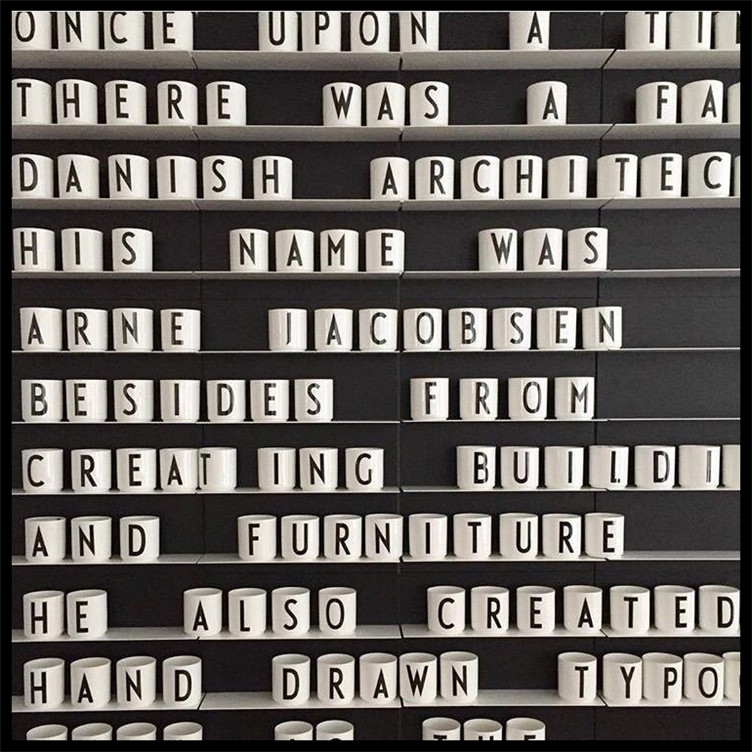 ONCE UPON A TI
THERE WAS A FA
DANISH ARCHITEC
HIS NAME WAS
ARNE JACOBSEN
BESIDES FROM
CREATING BUILDI
AND FURNITURE
HE ALSO CREATED
HAND DRAWN TYPO